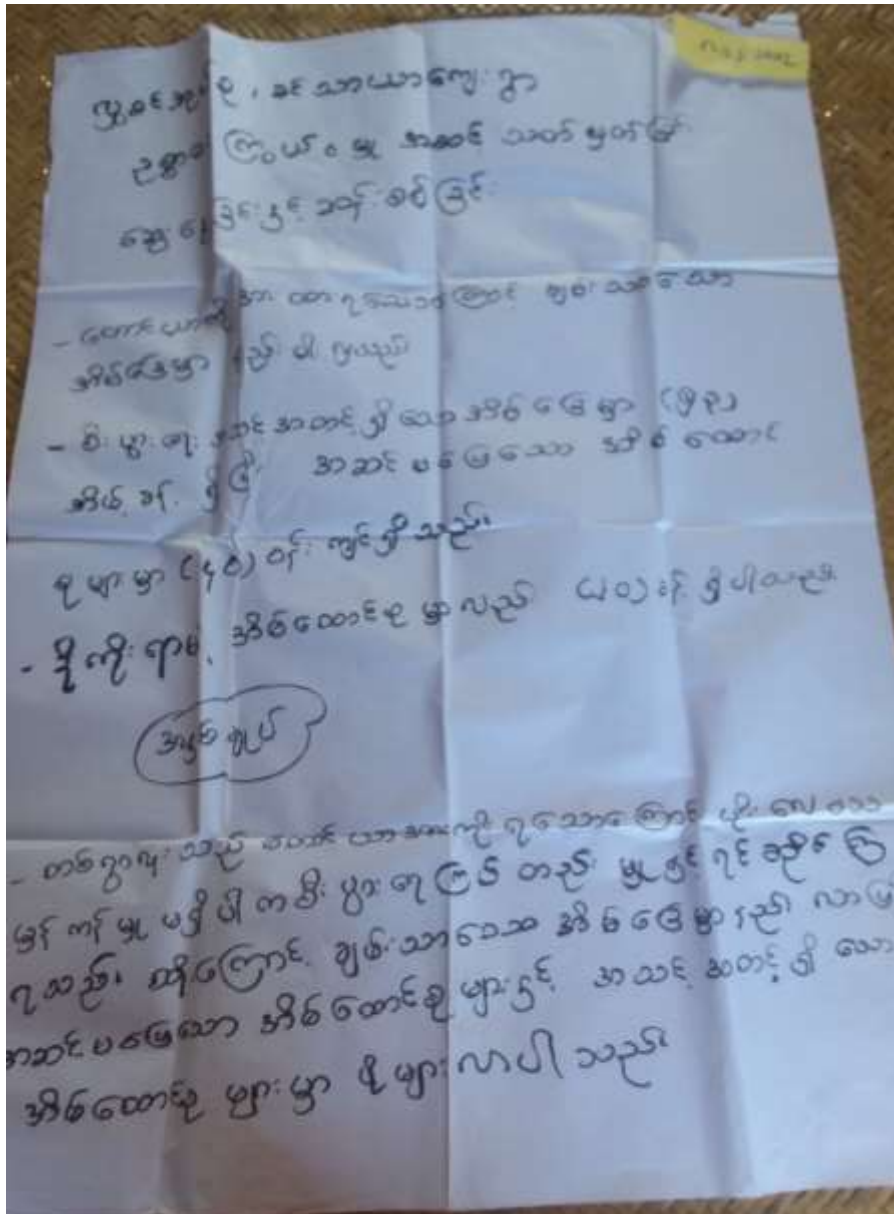 ဥစ္စာ ကြွယ်ဝမှု အဆင့် သတ်မှတ်ခြင်း
ဆွေးနွေးခြင်းနှင့် ဆန်းစစ်ခြင်း
- တောင်ယာကို အားထား ရသောကြောင့် ချမ်းသာသော
အိမ်ခြေမှာ နည်းပါးလှသည်။
- စီးပွားရေး အသင့်အတင့်ရှိသော အိမ်ခြေမှာ (၅၃)
အိမ်ခန့် ရှိပြီး အဆင်မပြေသော အိမ်ထောင်
စုများမှာ (၄၆) ဝန်းကျင်ရှိသည်။
- မှီခိုရာမဲ့ အိမ်ထောင်စု မှာလည်း (၂၀) ခန့် ရှိပါသည်။
အနှစ်ချုပ်
- တစ်ရွာလုံးသည် တောင်ယာအားကိုးရသောကြောင့် မိုးလေဝသ
မှန်ကန်မှု မရှိပါက စီးပွားရေးကြပ်တည်းမှုနှင့် ရင်ဆိုင်ကြ
ရသည်။ ထို့ကြောင့် ချမ်းသာသော အိမ်ခြေမှာနည်းလာပြီး
အဆင်မပြေသော အိမ်ထောင်စုများနှင့် အသင့်အတင့်ရှိသော
အိမ်ထောင်စုများမှာ ပိုများလာပါသည်။